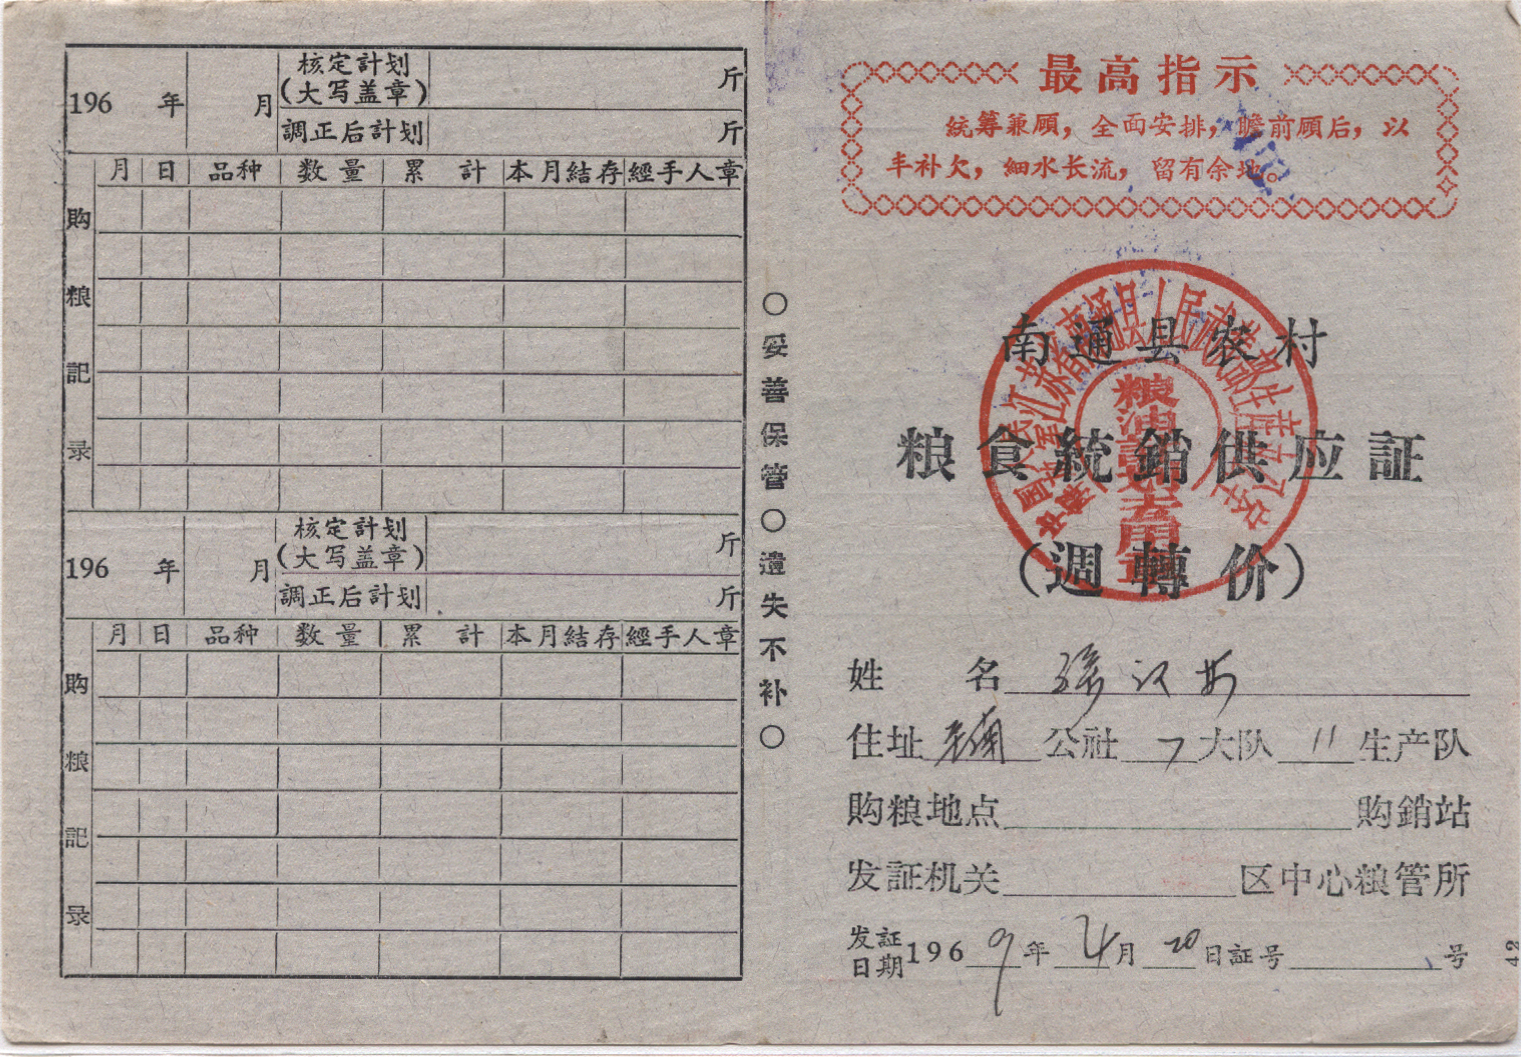 196 年 月 核定計划 斤
(大写盖章)
調正后計划 斤
月 日 品种 数量 累計 本月結存 經手人章
购粮記录
196 年 月 核定計划 斤
(大写盖章)
調正后計划 斤
月 日 品种 数量 累計 本月結存 經手人章
购粮記录
○妥善保管○遺失不补○
最高指示
統筹兼顾，全面安排，瞻前顾后，以
丰补欠，細水长流，留有余地。
南通县农村
粮食統銷供应証
(週轉价)
粮油計划专用章
姓 名 汉
住址 公社 7 大队 11 生产队
购粮地点 购銷站
发証机关 区中心粮管所
发証日期 1969年4月20日 証号 号
42